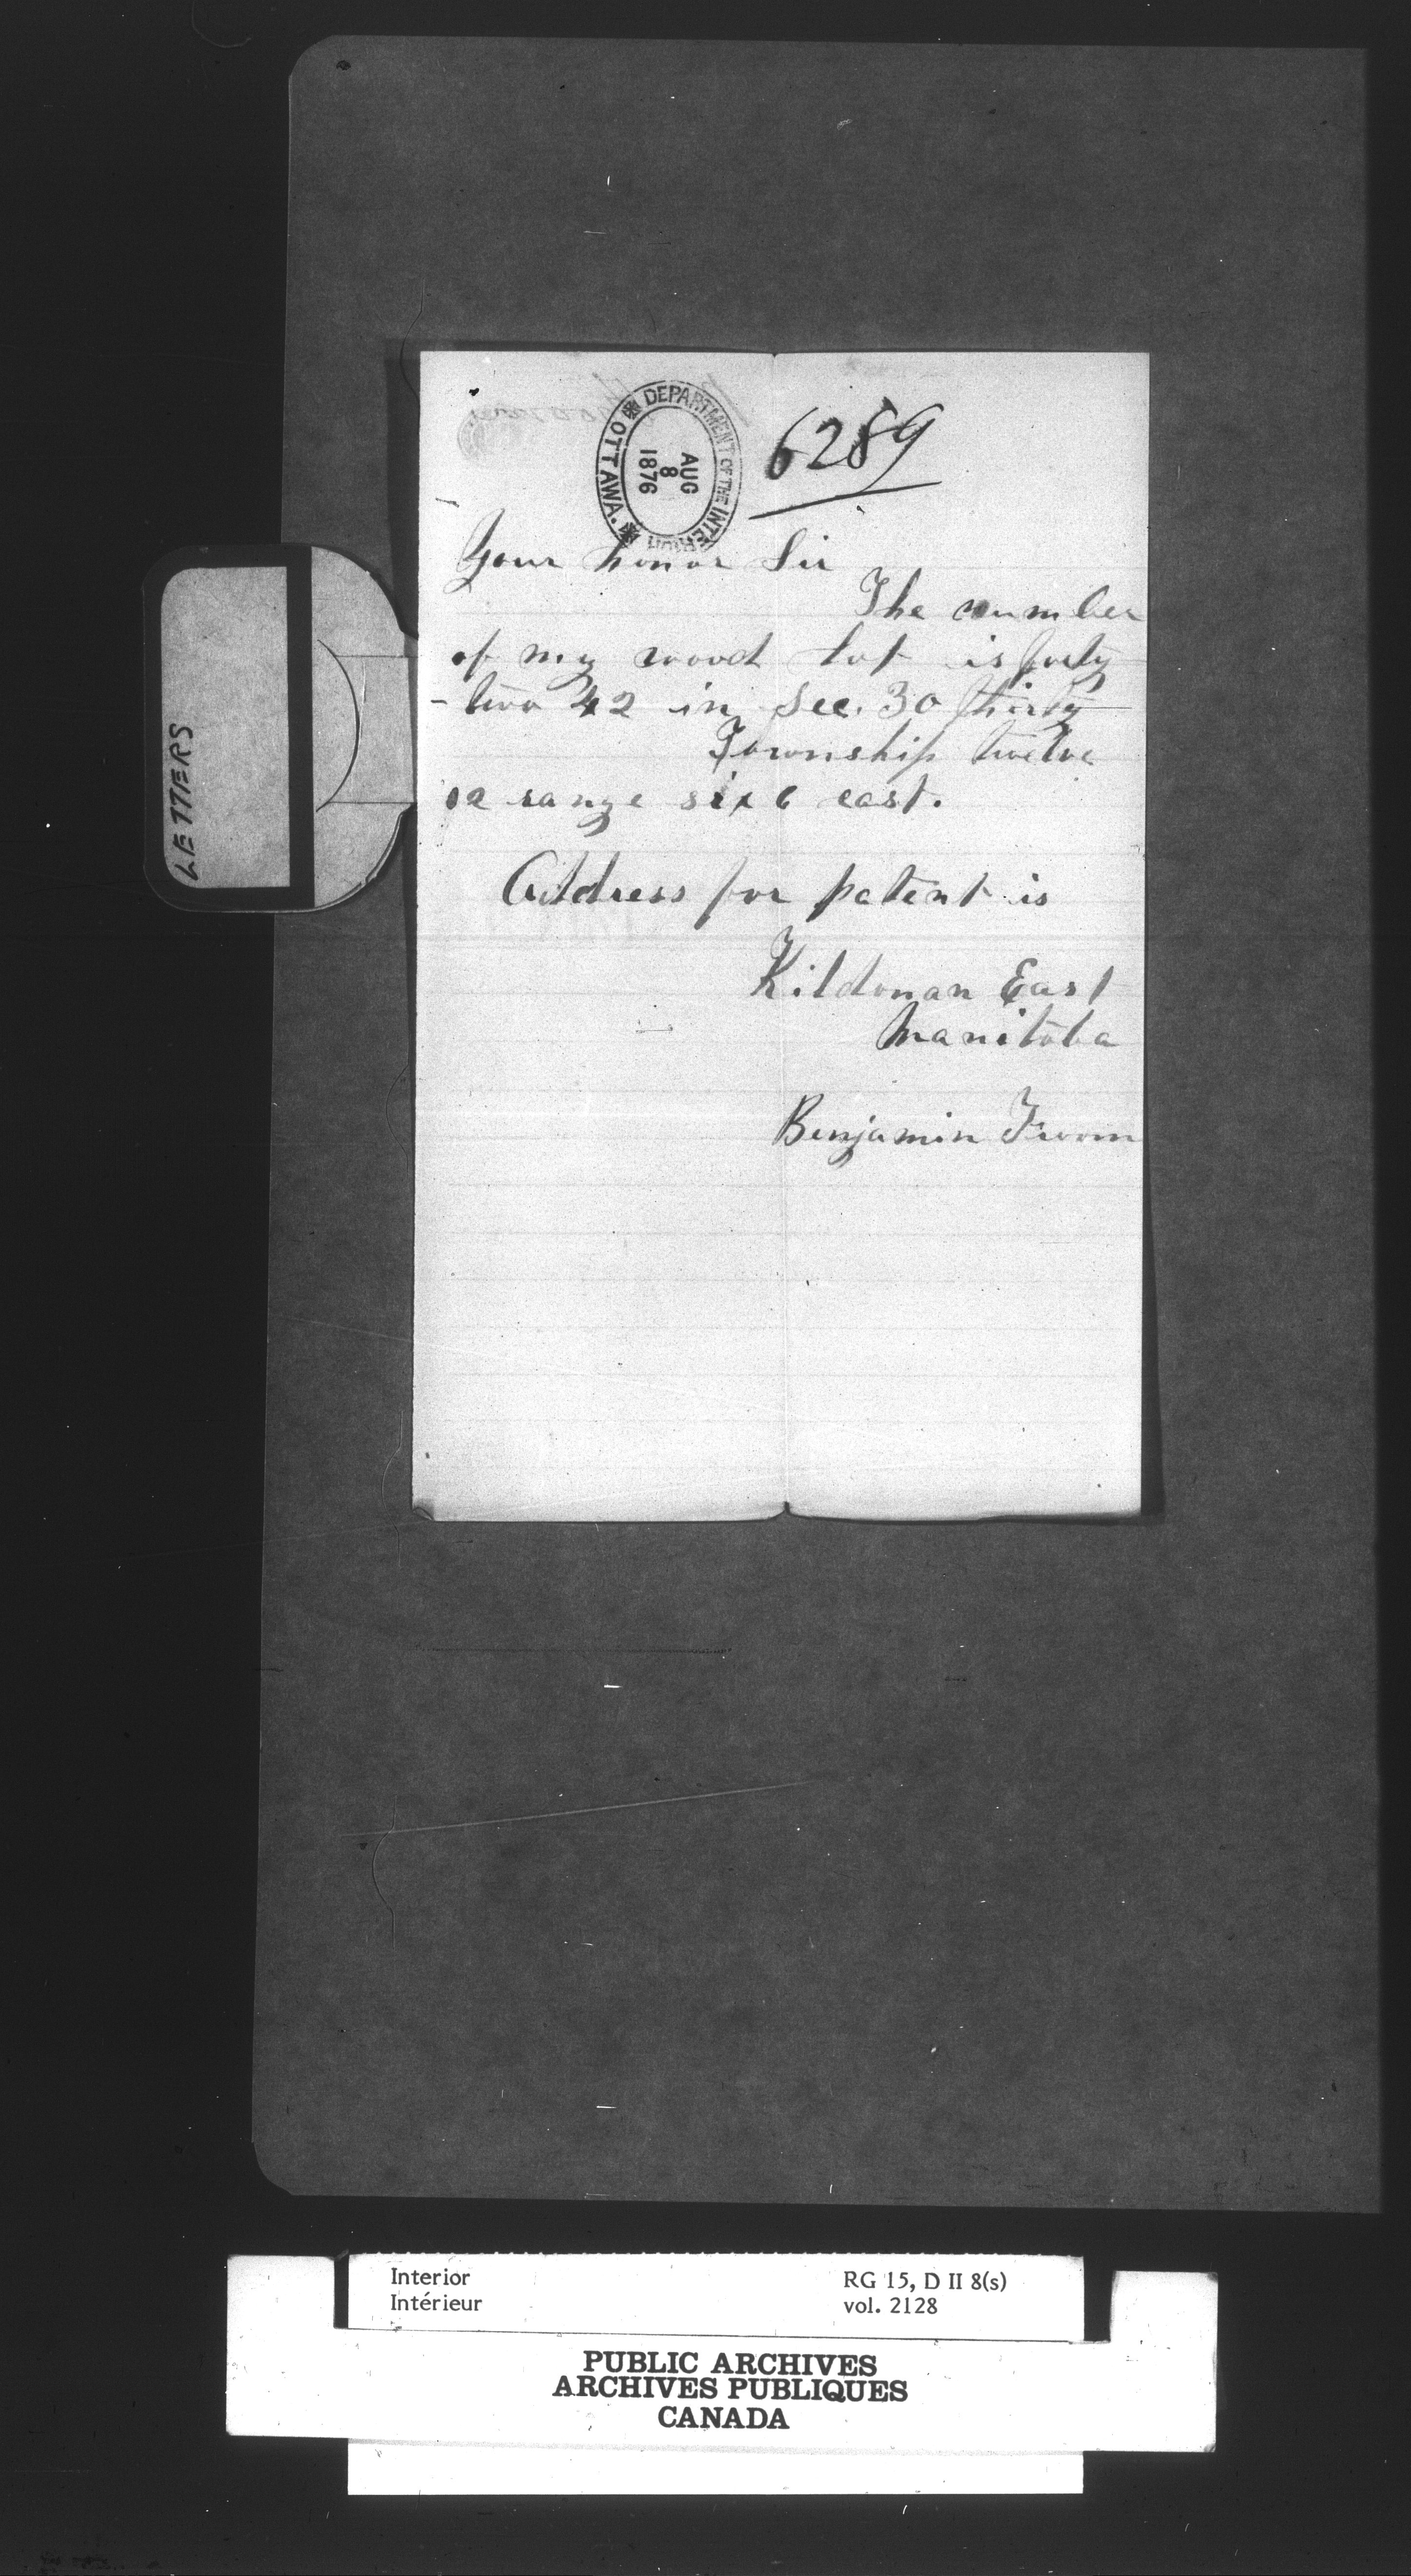 DEPARTMENT OF THE INTERIOR
OTTAWA.
AUG
8
1876
6289
Your honor Sir
The number
of my wood lot is forty
- two 42 in Sec. 30 thirty
Township twelve
12 range six 6 east.
Address for patent is
Kildonan East
Manitoba
Benjamin Froom
LETTERS
Interior
Intérieur
RG 15, D II 8(s)
vol. 2128
PUBLIC ARCHIVES
ARCHIVES PUBLIQUES
CANADA